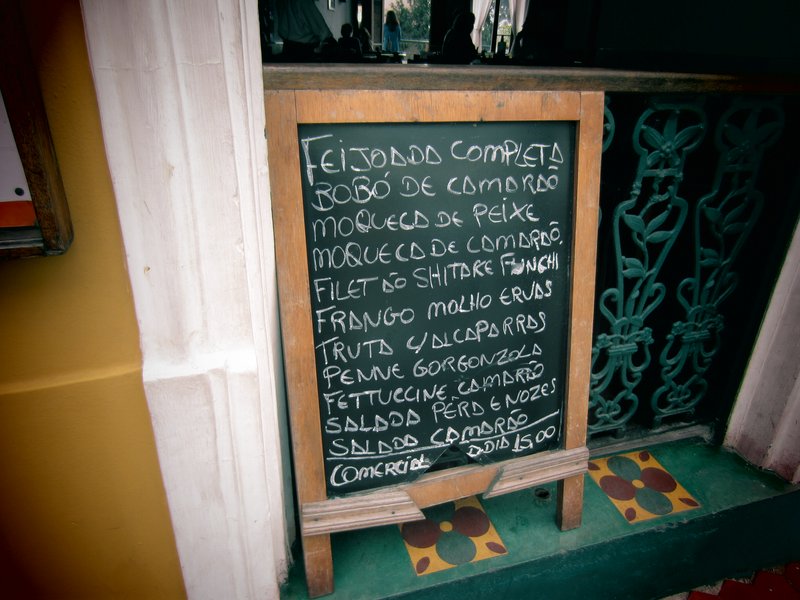 FEIJOADA COMPLETA
BOBÓ DE CAMARÃO
MOQUECA DE PEIXE
MOQUECA DE CAMARÃO.
FILET AO SHITAKE FUNGHI
FRANGO MOLHO ERVAS
TRUTA C/ALCAPARRAS
PENNE GORGONZOLA
FETTUCCINE CAMARÃO
SALADA PÊRA E NOZES
SALADA CAMARÃO
COMERCIAL D.DIA 15,00